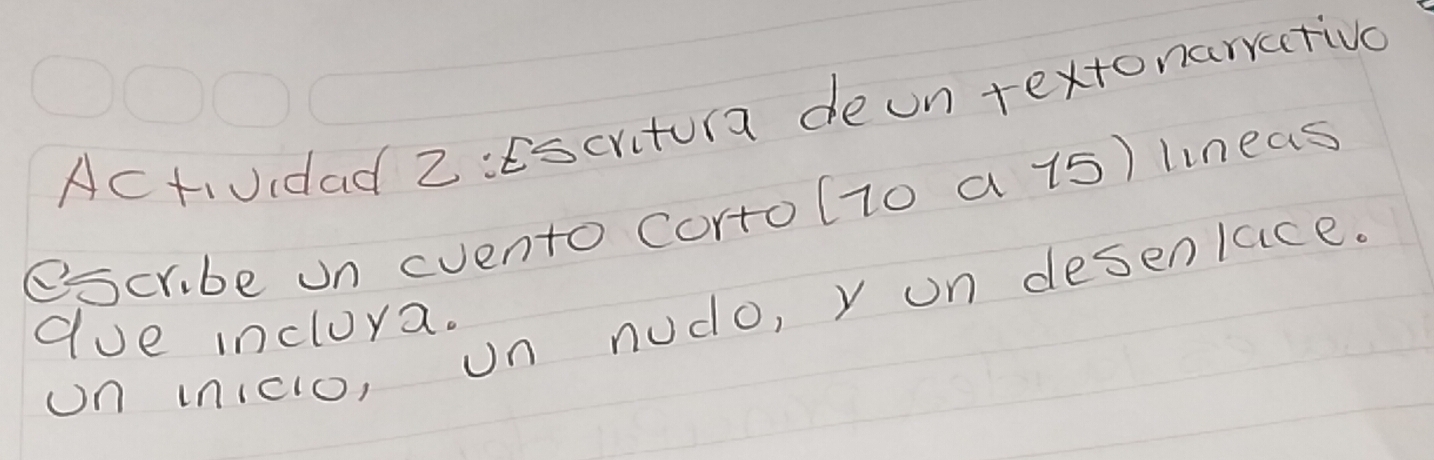 Actividad 2: Escritura de un texto narrativo
escribe un cuento corto (10 a 15) lineas
que incluya.
un inicio, un nudo, y un desenlace.